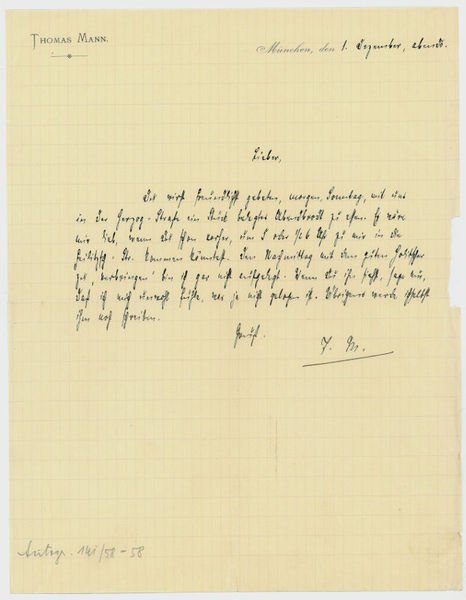 THOMAS MANN.
München, den 1. Dezember, abends.
Lieber,
Du wirst freundlichst gebeten, morgen, Sonntag, mit uns
in der Herzog-Straße ein Stück belegtes Abendbrodt zu essen. Es wäre
mir lieb, wenn Du schon vorher, um 5 oder ½6 Uhr zu mir in die
Feilitzsch-Str. kommen könntest. Den Nachmittag mit dem guten Holitscher
zu verbringen bin ich gar nicht aufgelegt. Wenn Du ihn siehst, sage nur,
daß ich mich
was ja nicht gelogen ist. Übrigens werde ich selbst
ihm noch schreiben.
Gruß.
T. M.
Autogr. 141/58-58